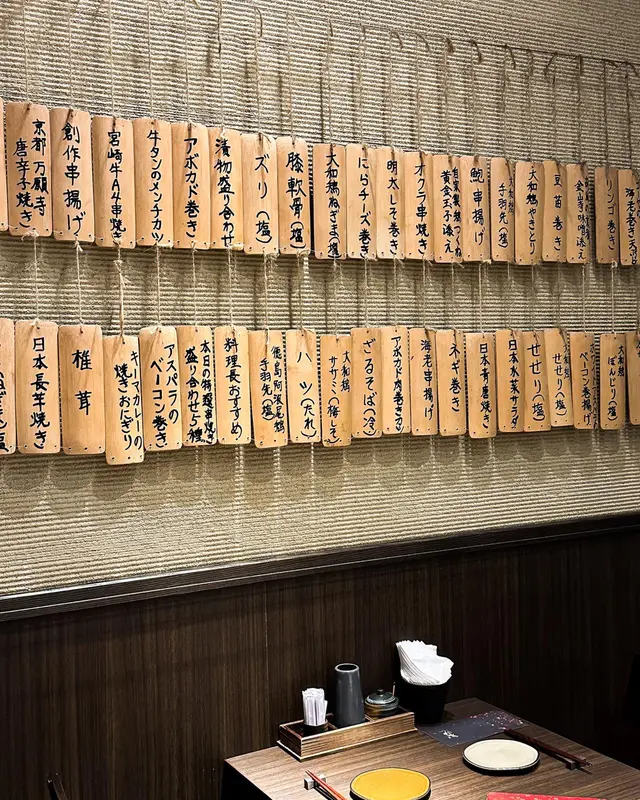 京都 万願寺
唐辛子焼き
創作串揚げ
宮崎牛A4串焼
牛タンのメンチカツ
アボカド巻き
漬物盛り合わせ
ズリ(塩)
膝軟骨(塩)
大和鶏ねぎま(塩)
にらチーズ巻き
明太しそ巻き
オクラ串焼き
自家製鶏つくね
黄金玉子添え
鮑串揚げ
大和鶏
手羽先(塩)
大和鶏やきとり
豆苗巻き
金山寺味噌添え
リンゴ巻き
日本長芋焼き
椎茸
キーマカレーの
焼きおにぎり
アスパラの
ベーコン巻き
本日の特選串焼
盛り合わせ5種
料理長おすすめ
徳島阿波尾鶏
手羽先(塩)
ハツ(たれ)
大和鶏
ササミ(梅しそ)
ざるそば(冷)
アボカド肉巻きカツ
海老串揚げ
ネギ巻き
日本青唐焼き
日本水菜サラダ
せせり(塩)
せせり(塩)
ベーコン巻揚げ
大和鶏
ぼんじり(塩)